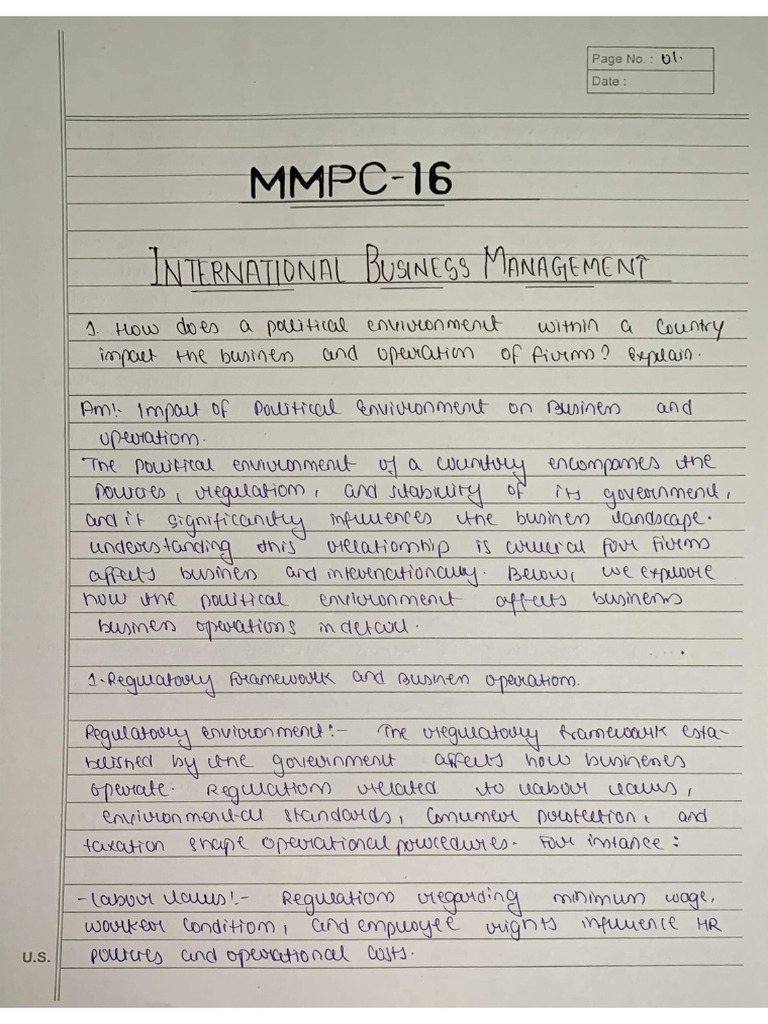 Page No. : 01.
Date :
MMPC-16
INTERNATIONAL BUSINESS MANAGEMENT
1. How does a political environment within a country
impact the business and operation of firms? Explain.
Ans:- Impact of Political Environment on Business and
operation.
The political environment of a country encompasses the
policies, regulation, and stability of its government,
and it significantly influences the business landscape.
understanding this relationship is crucial for firms
affects business and internationally. Below, we explore
how the political environment affects business
business operations in detail.
1. Regulatory Framework and Business operation.
Regulatory environment:- The regulatory framework esta-
blished by the government affects how businesses
operate. Regulations related to labour laws,
environmental standards, Consumer protection, and
taxation shape operational procedures. For instance :
- Labour laws:- Regulations regarding minimum wage,
worker condition, and employee rights influence HR
policies and operational costs.
U.S.